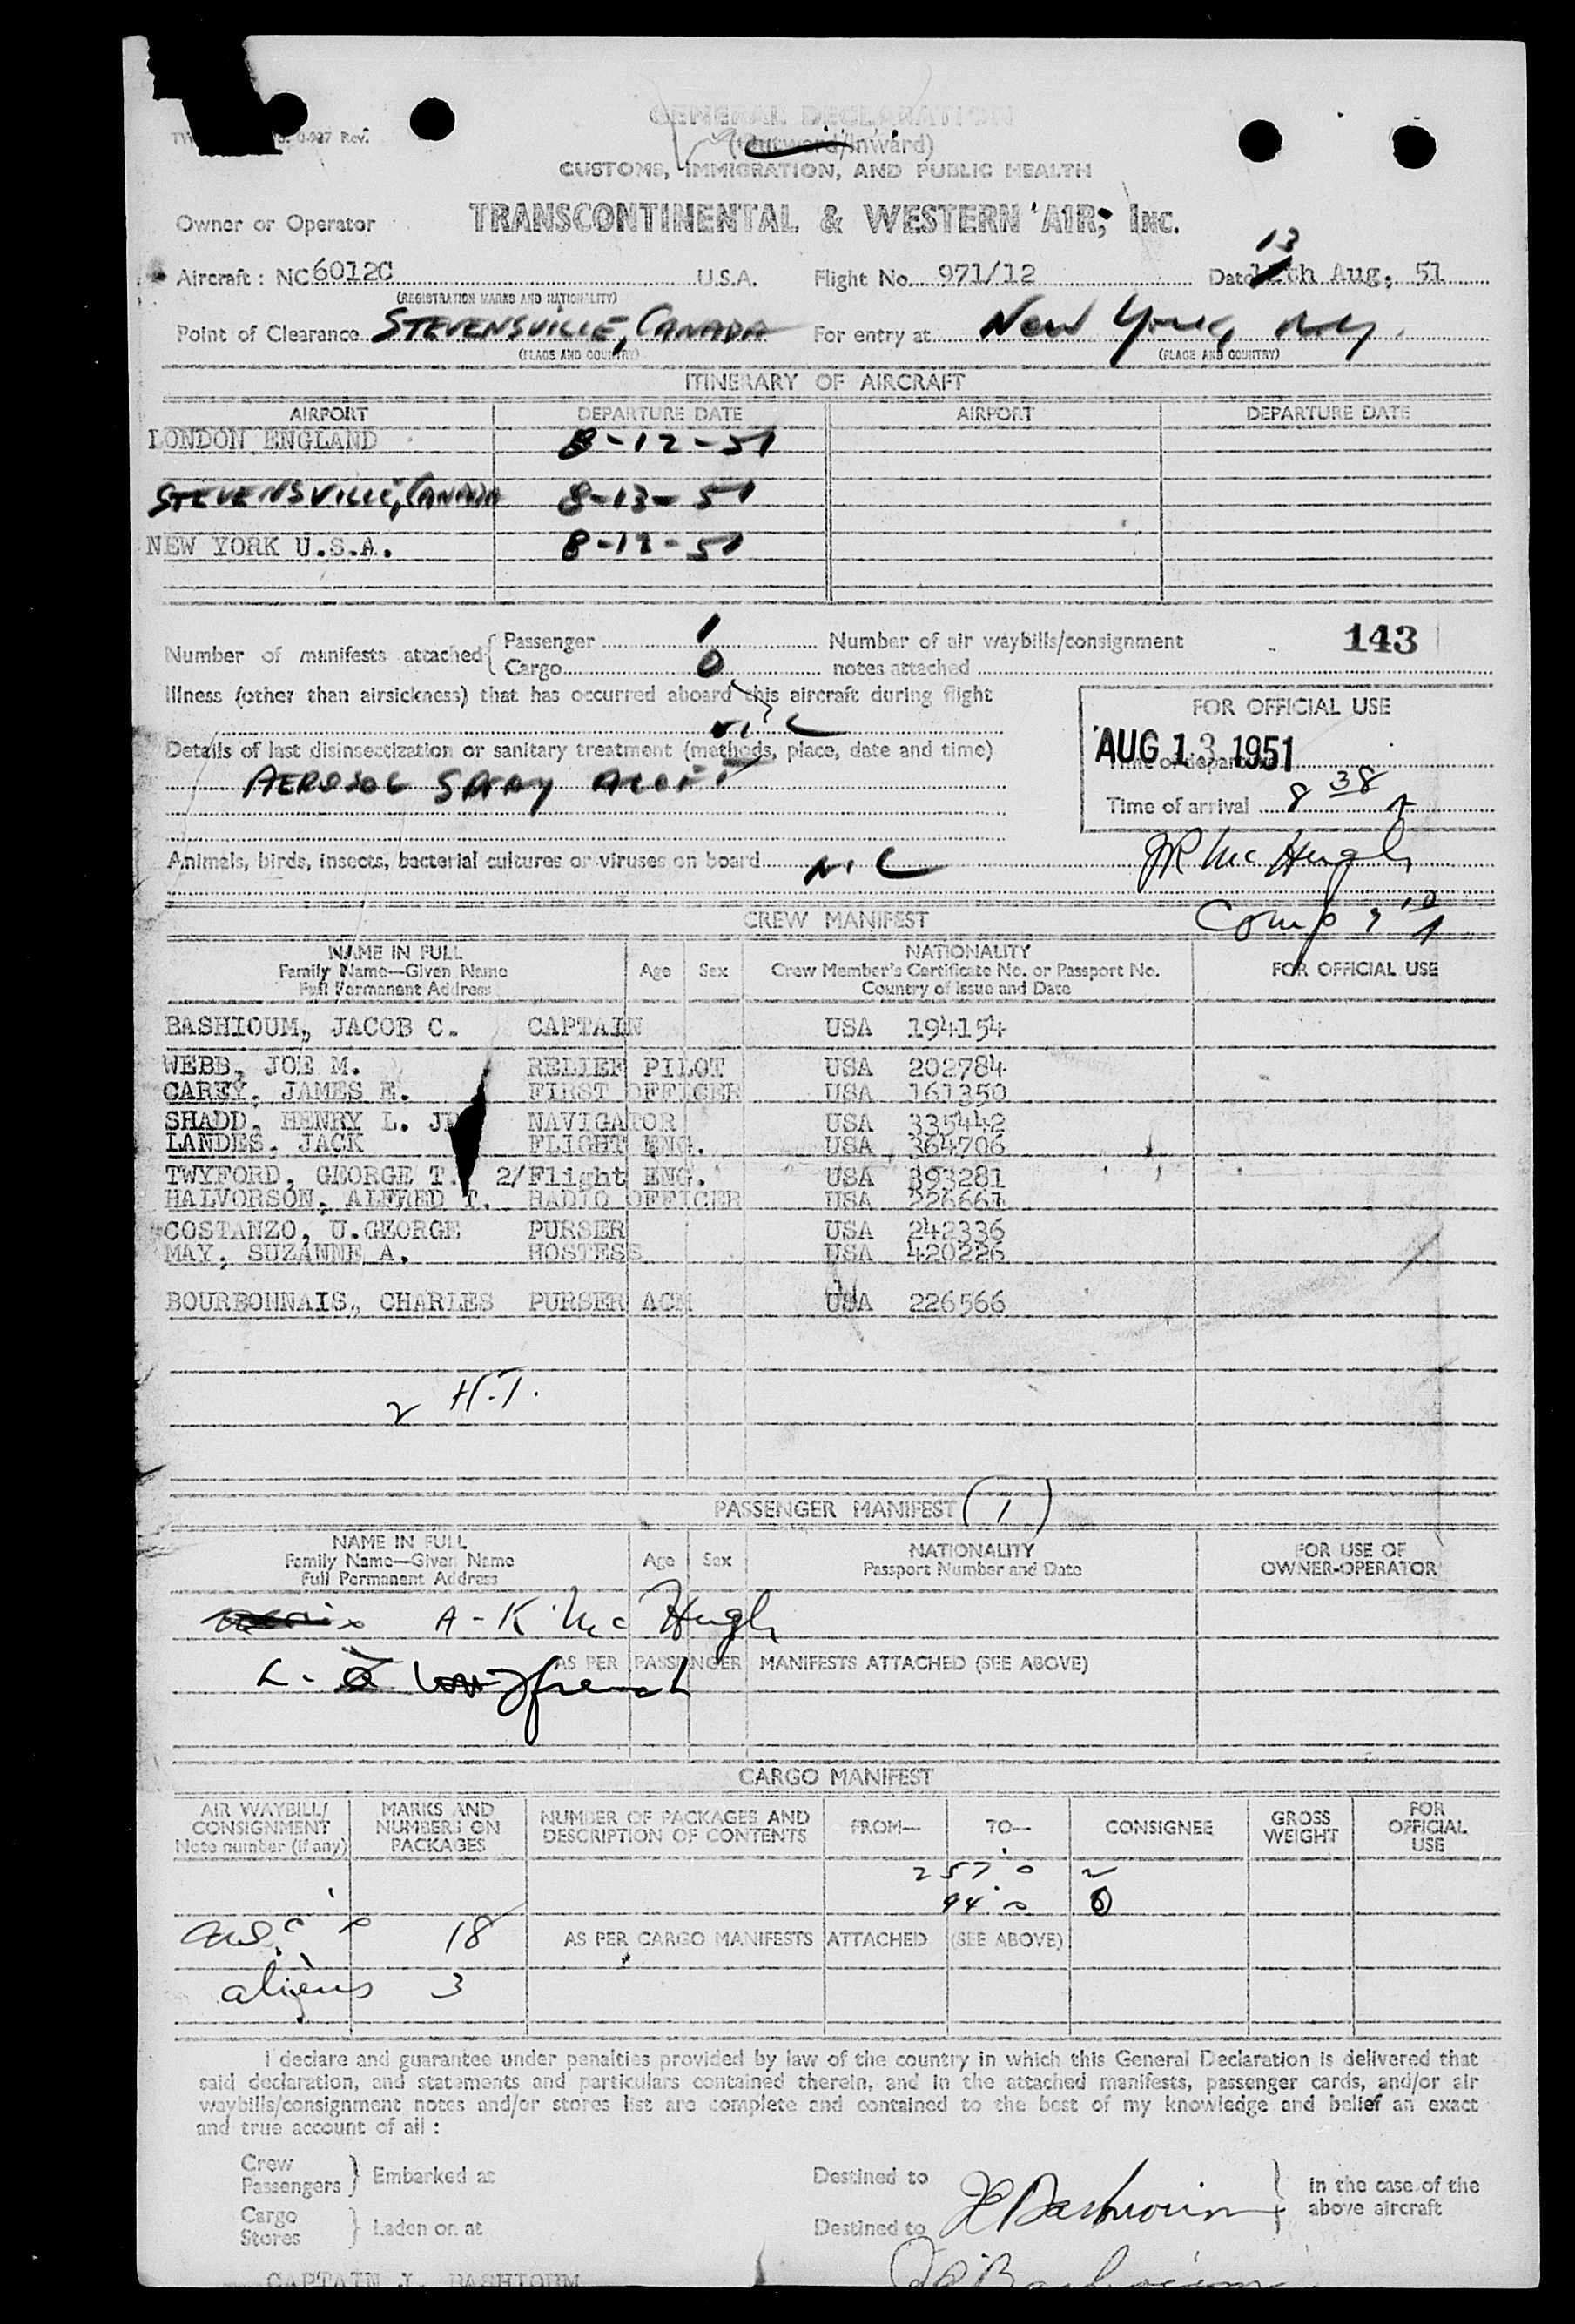 GENERAL DECLARATION
(Outward/Inward)
CUSTOMS, IMMIGRATION, AND PUBLIC HEALTH
Rev.
Owner or Operator TRANSCONTINENTAL & WESTERN AIR, INC.
13
Aircraft: NC 6012C U.S.A. Flight No. 971/12 Date 12th Aug, 51
(REGISTRATION MARKS AND NATIONALITY)
Point of Clearance STEVENSVILLE, CANADA For entry at New York, N.Y.
(PLACE AND COUNTRY) (PLACE AND COUNTRY)
ITINERARY OF AIRCRAFT
AIRPORT DEPARTURE DATE AIRPORT DEPARTURE DATE
LONDON ENGLAND 8-12-51
STEVENSVILLE, CANADA 8-13-51
NEW YORK U.S.A. 8-13-51
Number of manifests attached { Passenger 1 Number of air waybills/consignment 143
Cargo 0 notes attached
Illness (other than airsickness) that has occurred aboard this aircraft during flight
FOR OFFICIAL USE
NIL
Details of last disinsectization or sanitary treatment (methods, place, date and time)
AUG 13 1951
Time of departure
AEROSOL SPRAY ALOFT
Time of arrival 8 38 A
Animals, birds, insects, bacterial cultures or viruses on board NIL
JR McHugh
CREW MANIFEST
Comp 9 10 A
NAME IN FULL NATIONALITY
Family Name—Given Name Age Sex Crew Member's Certificate No. or Passport No. FOR OFFICIAL USE
Full Permanent Address Country of Issue and Date
BASHIOUM, JACOB C. CAPTAIN USA 194154
WEBB, JOE M. RELIEF PILOT USA 202784
CAREY, JAMES E. FIRST OFFICER USA 161350
SHADD, HENRY L. JR NAVIGATOR USA 335442
LANDES, JACK FLIGHT ENG. USA 364706
TWYFORD, GEORGE T. 2/Flight ENG. USA 393281
HALVORSON, ALFRED T. RADIO OFFICER USA 226661
COSTANZO, U.GEORGE PURSER USA 242336
MAY, SUZANNE A. HOSTESS USA 420226
BOURBONNAIS, CHARLES PURSER ACM USA 226566
2 H.T.
PASSENGER MANIFEST (1)
NAME IN FULL NATIONALITY FOR USE OF
Family Name—Given Name Age Sex Passport Number and Date OWNER-OPERATOR
Full Permanent Address
A-K McHugh
AS PER PASSENGER MANIFESTS ATTACHED (SEE ABOVE)
CARGO MANIFEST
AIR WAYBILL/ CONSIGNMENT Note number (if any) MARKS AND NUMBERS ON PACKAGES NUMBER OF PACKAGES AND DESCRIPTION OF CONTENTS FROM— TO— CONSIGNEE GROSS WEIGHT FOR OFFICIAL USE
18 AS PER CARGO MANIFESTS ATTACHED (SEE ABOVE)
aliens 3
I declare and guarantee under penalties provided by law of the country in which this General Declaration is delivered that
said declaration, and statements and particulars contained therein, and in the attached manifests, passenger cards, and/or air
waybills/consignment notes and/or stores list are complete and contained to the best of my knowledge and belief an exact
and true account of all:
Crew
Passengers } Embarked as Destined to JC Bashioum } in the case of the
above aircraft
Cargo
Stores } Laden on at Destined to
CAPTAIN J. BASHIOUM JC Bashioum